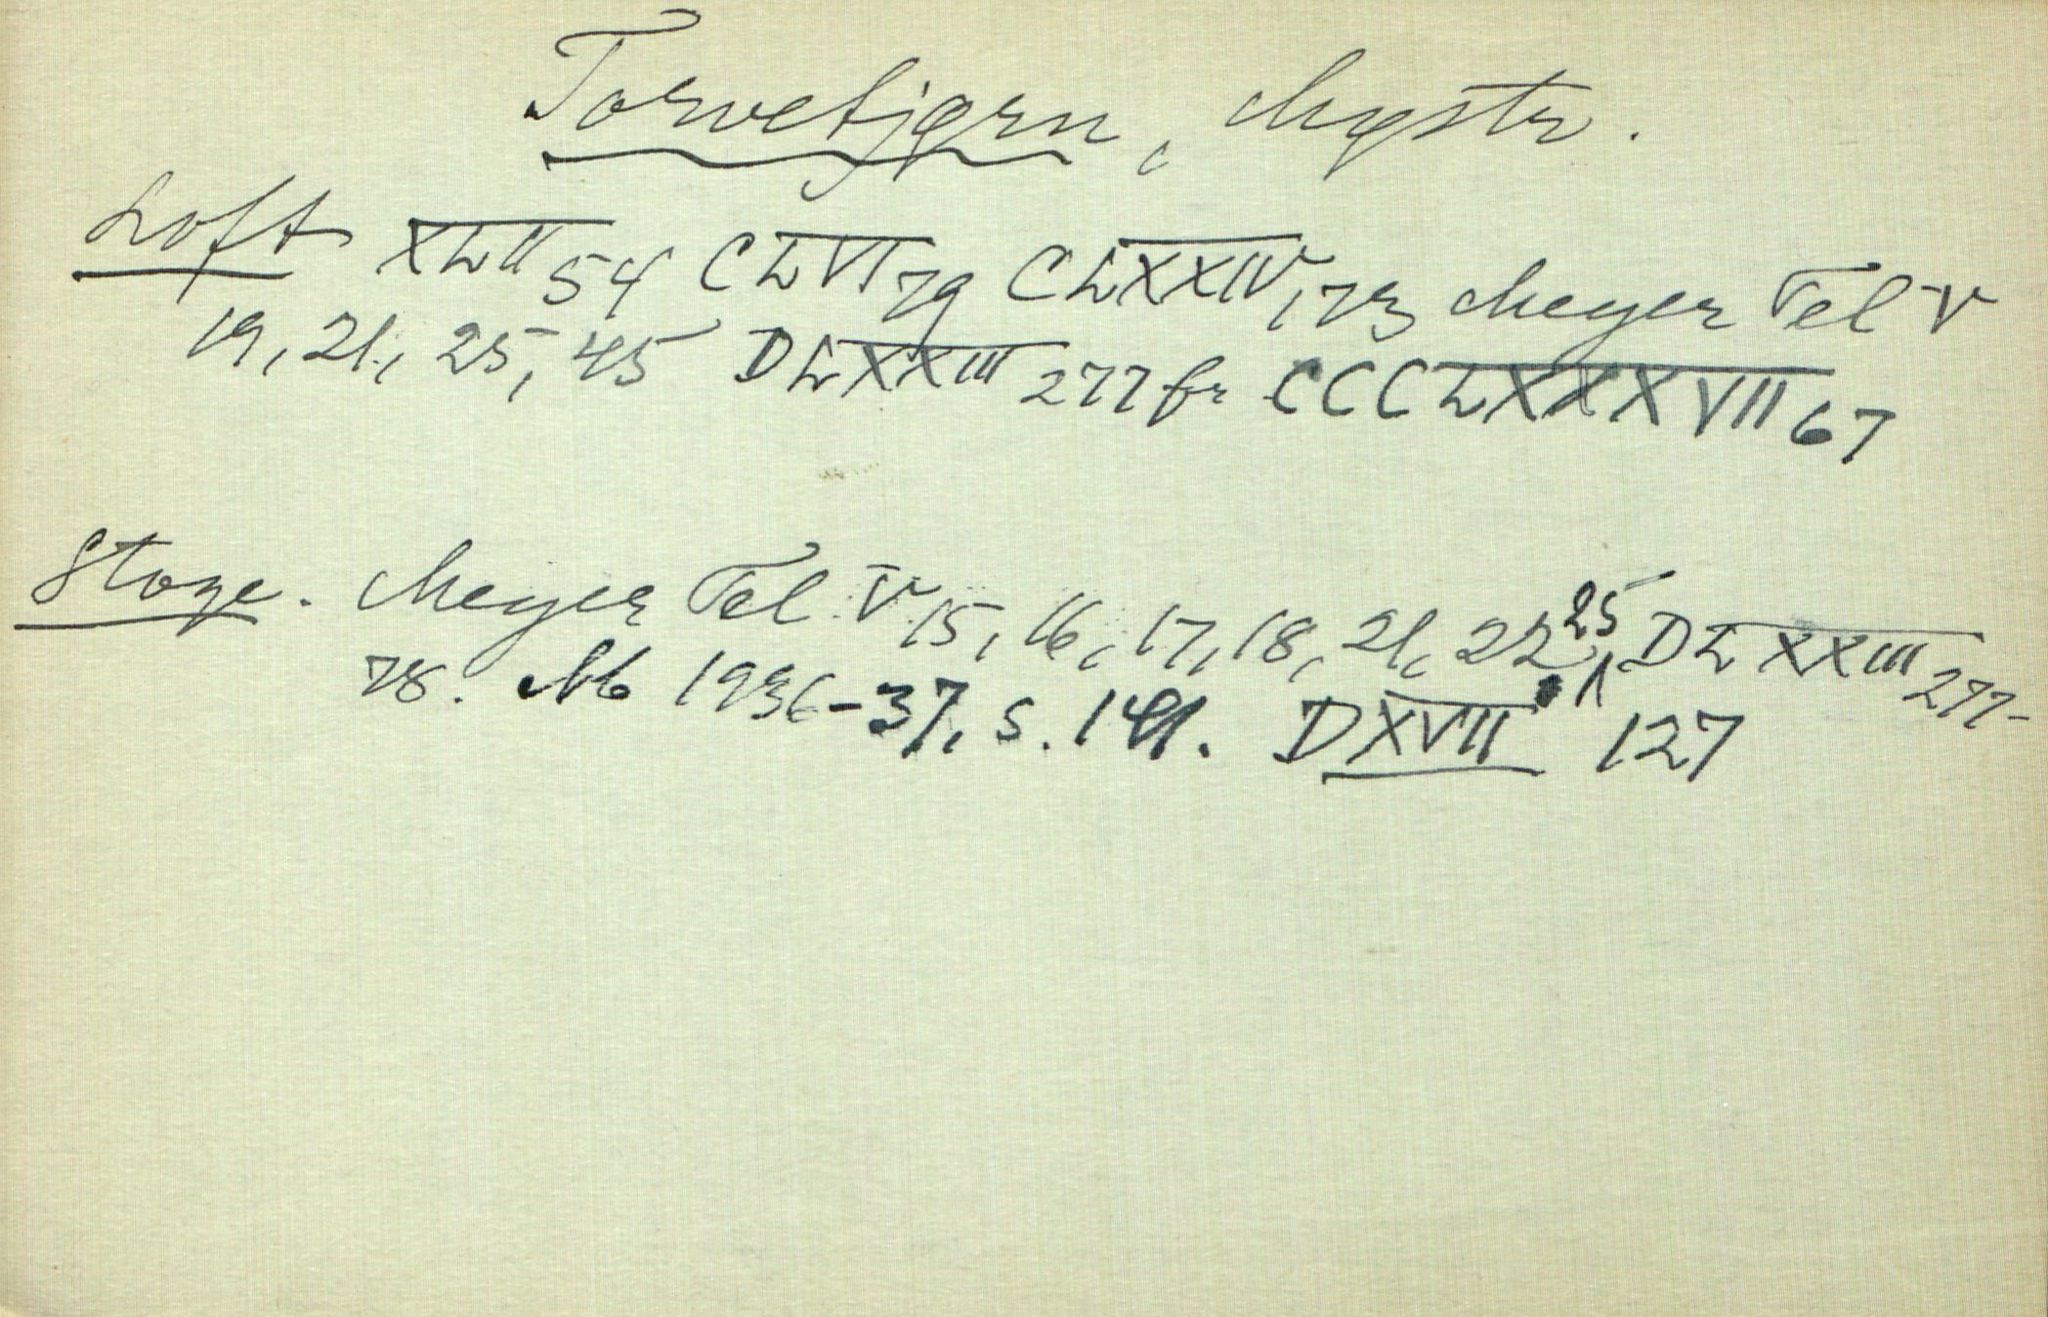 Torvetjørn, Møystr.
Loft XLII 54 CLVI 79 CLXXIV, 173 Meyer Tel V
19, 21, 25, 45 DLXXIII 277 fr CCCLXXXVII 67
Stoge. Meyer Tel V 15, 16, 17, 18, 21, 22, 25 DLXXIII 277-
78. Ab 1936-37, s. 141. DXVII 127